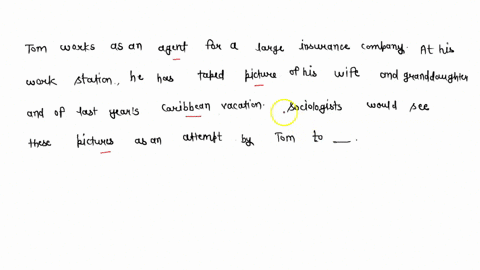 Tom works as an agent for a large insurance company. At his
work station, he has taped picture of his wife and granddaughter
and of last year's Caribbean vacation. Sociologists would see
these pictures as an attempt by Tom to __.